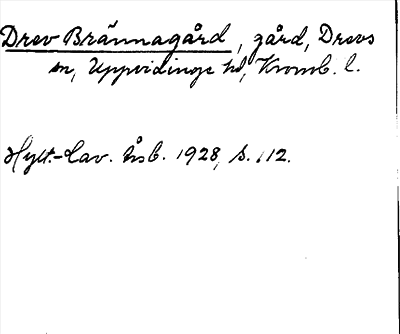 Drev Brännagård, gård, Drevs
sn, Uppvidinge hd, Kronob. l.
Hylt.-Cav. Åsb. 1928, s. 112.